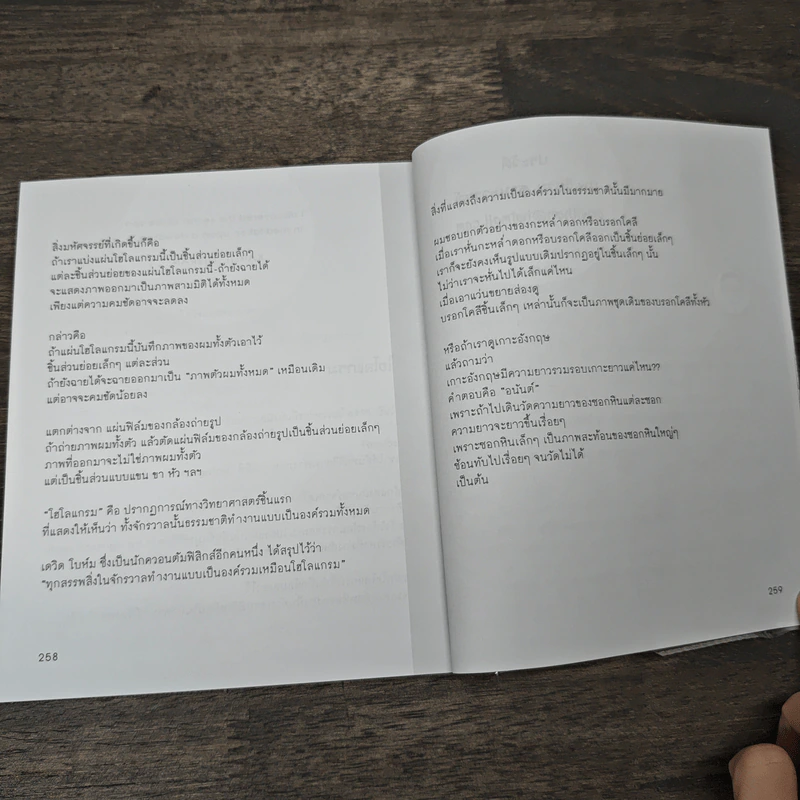 สิ่งมหัศจรรย์ที่เกิดขึ้นก็คือ
ถ้าเราแบ่งแผ่นโฮโลแกรมนี้เป็นชิ้นส่วนย่อยเล็กๆ
แต่ละชิ้นส่วนย่อยของแผ่นโฮโลแกรมนี้-ถ้ายังฉายได้
จะแสดงภาพออกมาเป็นภาพสามมิติได้ทั้งหมด
เพียงแต่ความคมชัดอาจจะลดลง
กล่าวคือ
ถ้าแผ่นโฮโลแกรมนี้บันทึกภาพของผมทั้งตัวเอาไว้
ชิ้นส่วนย่อยเล็กๆ แต่ละส่วน
ถ้ายังฉายได้จะฉายออกมาเป็น "ภาพตัวผมทั้งหมด" เหมือนเดิม
แต่อาจจะคมชัดน้อยลง
แตกต่างจาก แผ่นฟิล์มของกล้องถ่ายรูป
ถ้าถ่ายภาพผมทั้งตัว แล้วตัดแผ่นฟิล์มของกล้องถ่ายรูปเป็นชิ้นส่วนย่อยเล็กๆ
ภาพที่ออกมาจะไม่ใช่ภาพผมทั้งตัว
แต่เป็นชิ้นส่วนแบบแขน ขา หัว ฯลฯ
"โฮโลแกรม" คือ ปรากฏการณ์ทางวิทยาศาสตร์ชิ้นแรก
ที่แสดงให้เห็นว่า ทั้งจักรวาลนั้นธรรมชาติทำงานแบบเป็นองค์รวมทั้งหมด
เดวิด โบห์ม ซึ่งเป็นนักควอนตัมฟิสิกส์อีกคนหนึ่ง ได้สรุปไว้ว่า
"ทุกสรรพสิ่งในจักรวาลทำงานแบบเป็นองค์รวมเหมือนโฮโลแกรม"
258
สิ่งที่แสดงถึงความเป็นองค์รวมในธรรมชาตินั้นมีมากมาย
ผมชอบยกตัวอย่างของกะหล่ำดอกหรือบรอกโคลี
เมื่อเราหั่นกะหล่ำดอกหรือบรอกโคลีออกเป็นชิ้นย่อยเล็กๆ
เราก็จะยังคงเห็นรูปแบบเดิมปรากฏอยู่ในชิ้นเล็กๆ นั้น
ไม่ว่าเราจะหั่นไปได้เล็กแค่ไหน
เมื่อเอาแว่นขยายส่องดู
บรอกโคลีชิ้นเล็กๆ เหล่านั้นก็จะเป็นภาพชุดเดิมของบรอกโคลีทั้งหัว
หรือถ้าเราดูเกาะอังกฤษ
แล้วถามว่า
เกาะอังกฤษมีความยาวรวมรอบเกาะยาวแค่ไหน??
คำตอบคือ "อนันต์"
เพราะถ้าไปเดินวัดความยาวของซอกหินแต่ละซอก
ความยาวจะยาวขึ้นเรื่อยๆ
เพราะซอกหินเล็กๆ เป็นภาพสะท้อนของซอกหินใหญ่ๆ
ซ้อนทับไปเรื่อยๆ จนวัดไม่ได้
เป็นต้น
259